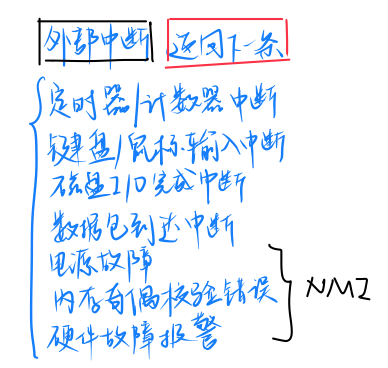 外部中断 返回下一条
定时器/计数器中断
键盘/鼠标输入中断
磁盘I/O完成中断
数据包到达中断
电源故障
内存奇偶校验错误
硬件故障报警
NMI